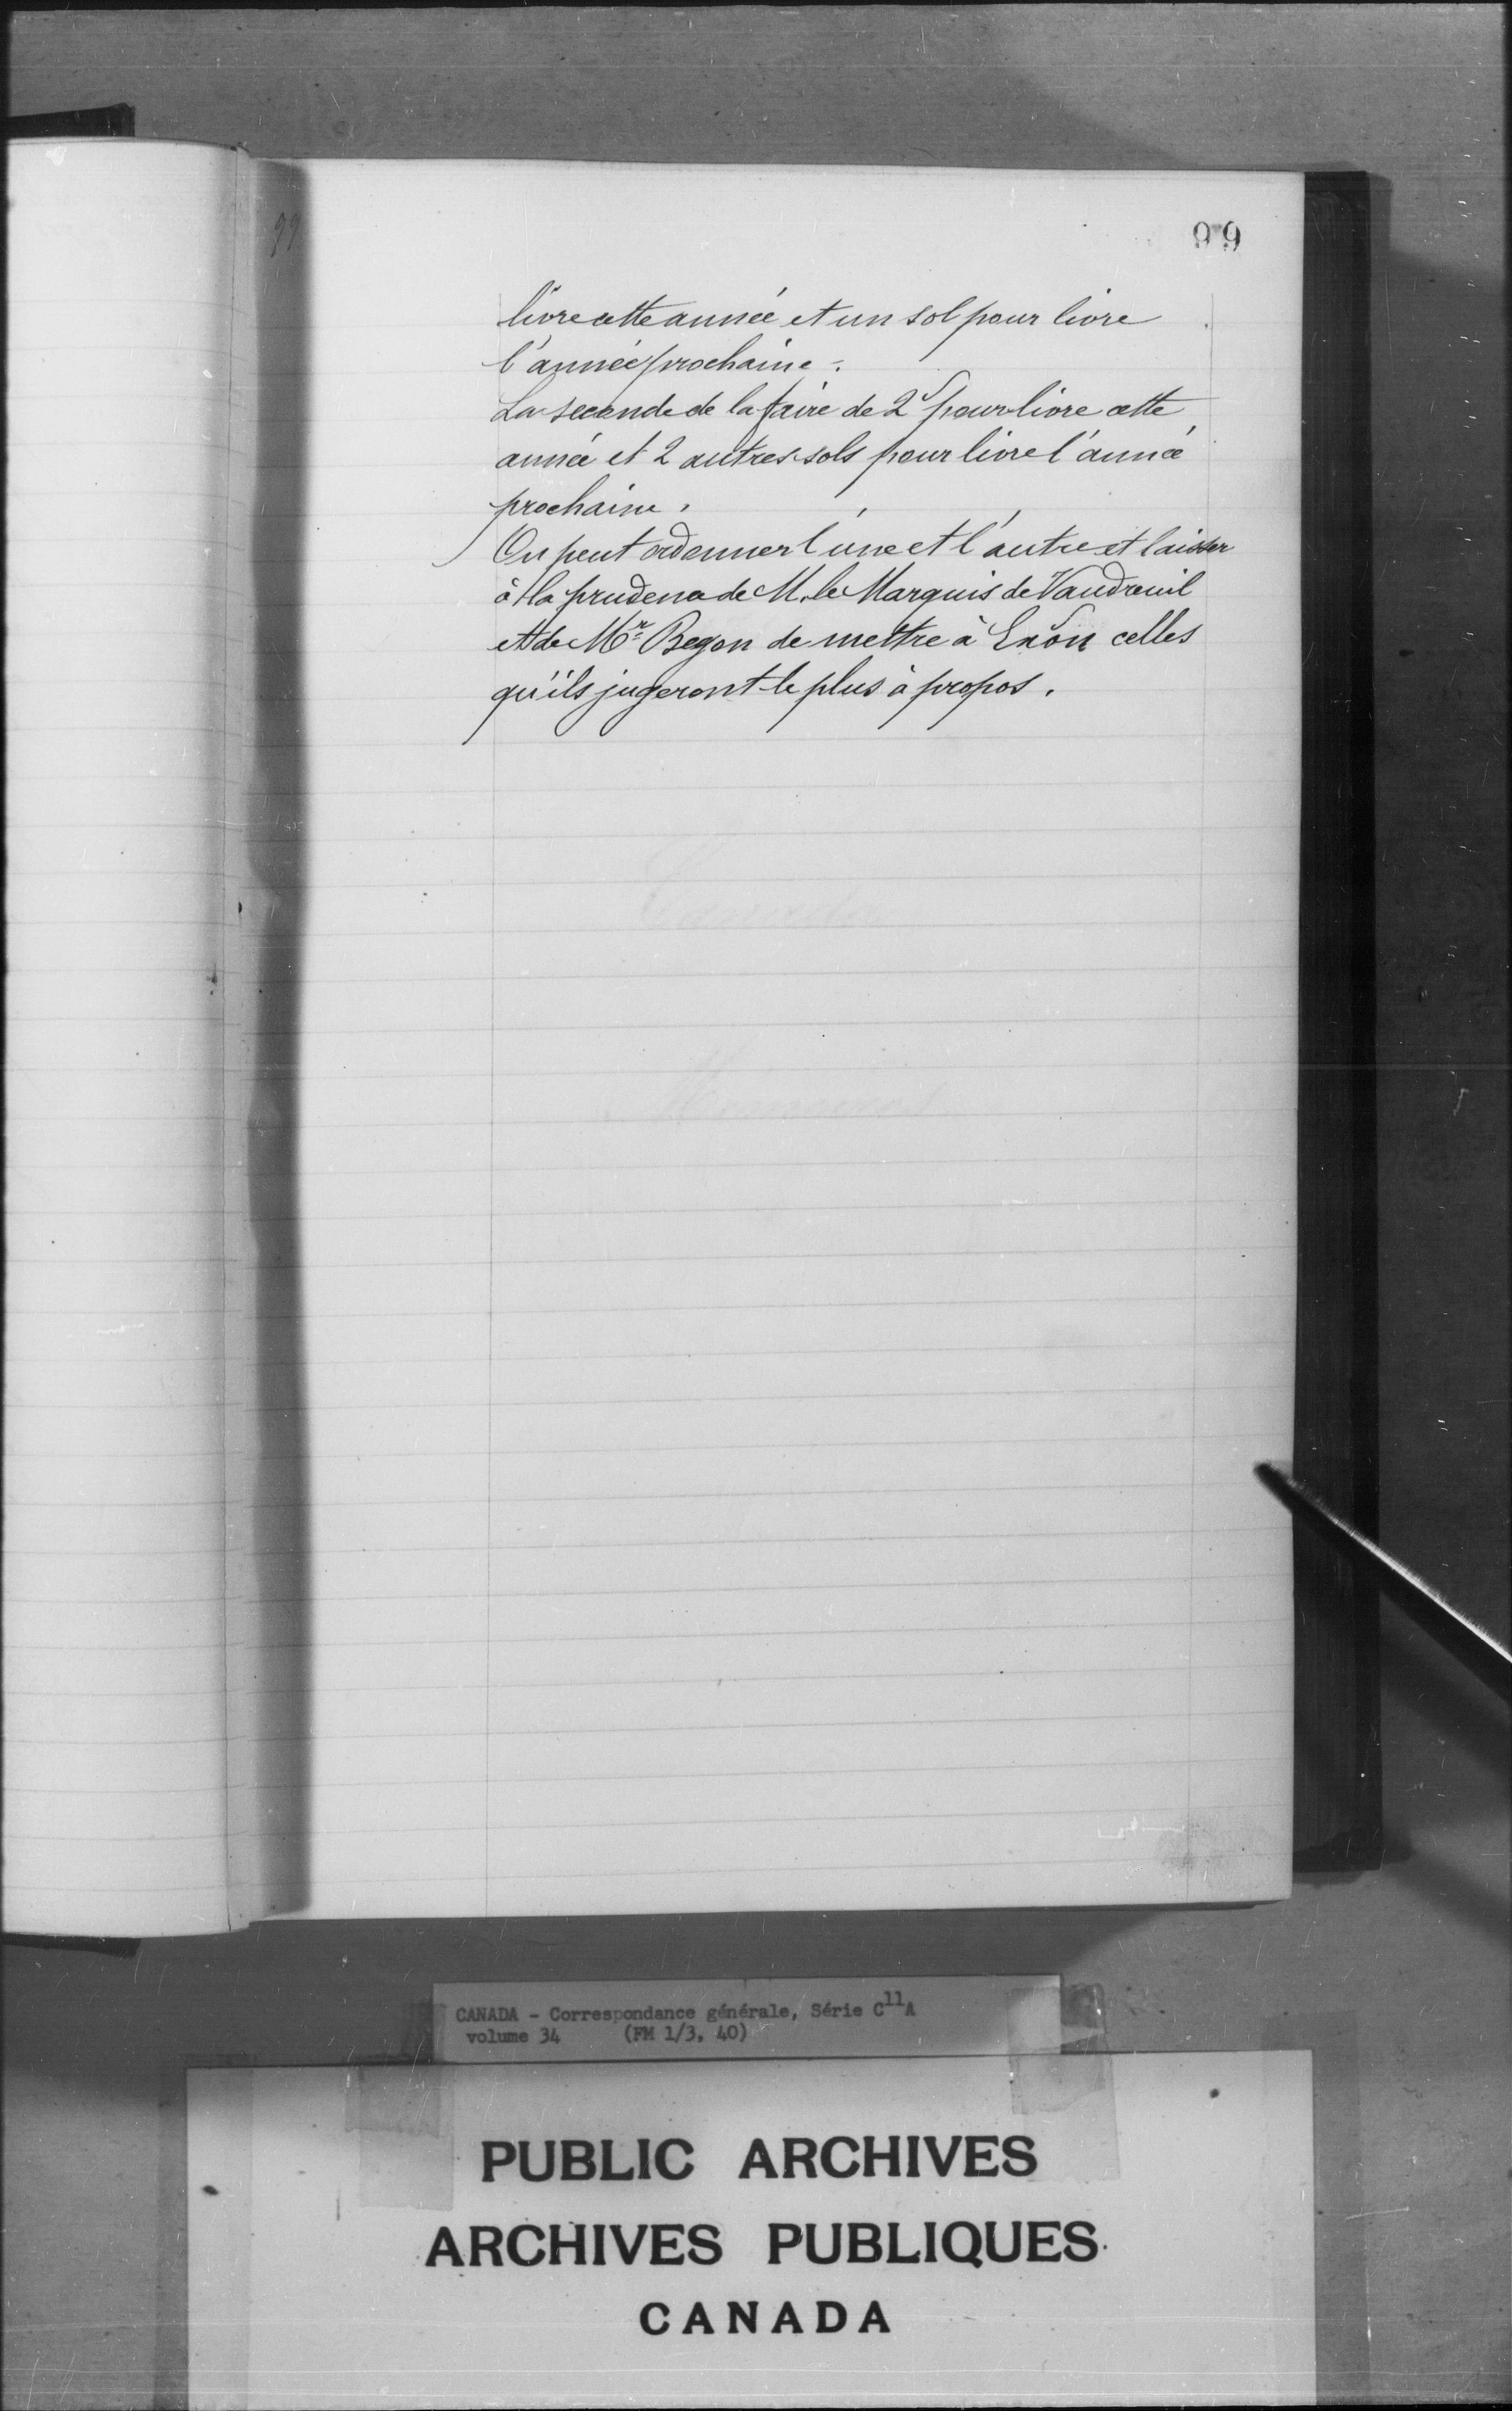 99
99
livre cette année et un sol pour livre
l'année prochaine.
La seconde de la faire de 2ˢ pour livre cette
année et 2 autres sols pour livre l'année
prochaine.
On peut ordonner l'une et l'autre et laisser
à la prudence de M. le Marquis de Vaudreuil
et de Mr. Begon de mettre à Exôn celles
qu'ils jugeront le plus à propos.
CANADA - Correspondance générale, Série C11A
volume 34 (FM 1/3, 40)
PUBLIC ARCHIVES
ARCHIVES PUBLIQUES
CANADA